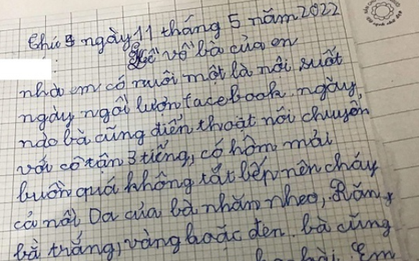 Chủ 5 ngày 11 tháng 5 năm 2022
Kể về bà của em
nhà em có nuôi một là nôi suốt
ngày ngồi lươn facebook ngày
nào bà cũng điển thoăt nói chuyên
với cô tận 3 tiếng, có hôm mải
buôn quá không tắt bếp nên cháy
cả nồi. Da của bà nhăn nheo, Răn
bà trắng, vàng hoăc đen. bà cũng
bài. Em